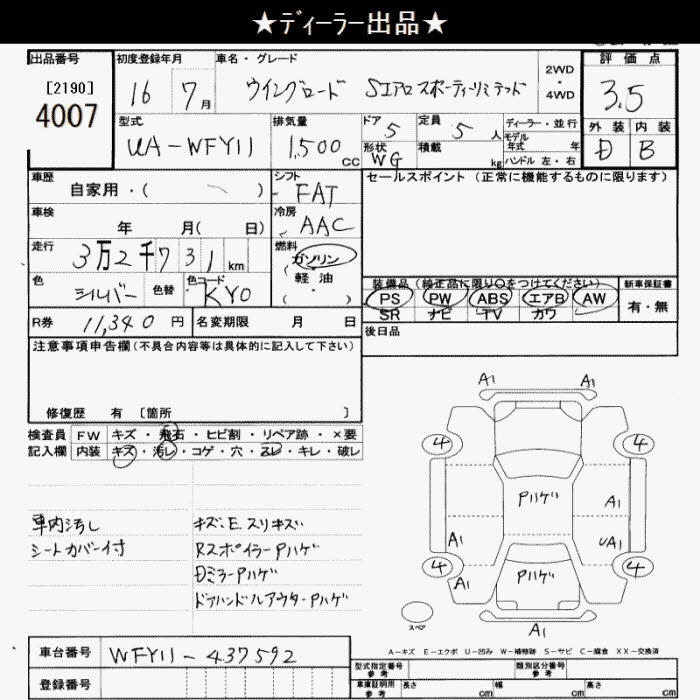 ★ディーラー出品★
出品番号 初度登録年月 車名・グレード 2WD・4WD 評価点
[2190] 4007 16 7月 ウイングロード Sエアロ スポーティーリミテッド 3.5
型式 排気量 ドア 定員 ディーラー・並行 外装 内装
UA-WFY11 1,500cc 5 5人 モデル年式 年 D B
形状 WG 積載 kg ハンドル 左・右
車歴 シフト セールスポイント (正常に機能するものに限ります)
自家用・( ) FAT
車検 冷房
年 月( 日) AAC
走行 燃料
3万2千731km ガソリン
軽油
色 色替 色コード ・( ) 装備品 (純正品に限り○をつけてください) 新車保証書
シルバー KY0 PS PW ABS エアB AW 有・無
SR ナビ TV カワ
R券 11,340円 名変期限 月 日 後日品
注意事項申告欄(不具合内容等は具体的に記入して下さい)
修復歴 有 [箇所 ]
検査員 FW キズ・飛石・ヒビ割・リペア跡・×要
記入欄 内装 キズ・汚レ・コゲ・穴・スレ・キレ・破レ
車内汚し キズ、E スリキズ
シートカバー付 RスポイラーPハゲ
DミラーPハゲ
ドアハンドルアウターPハゲ
A1 A1
4 4
Pハゲ
A1
A1 UA1
4 4
A1 Pハゲ
スペア A1
A-キズ E-エクボ U-凹み W-補修跡 S-サビ C-腐食 XX-交換済
車台番号 WFY11-437592
型式指定番号 参考 類別区分番号 参考
登録番号 車庫証明用 参考 長さ cm 幅 cm 高さ cm